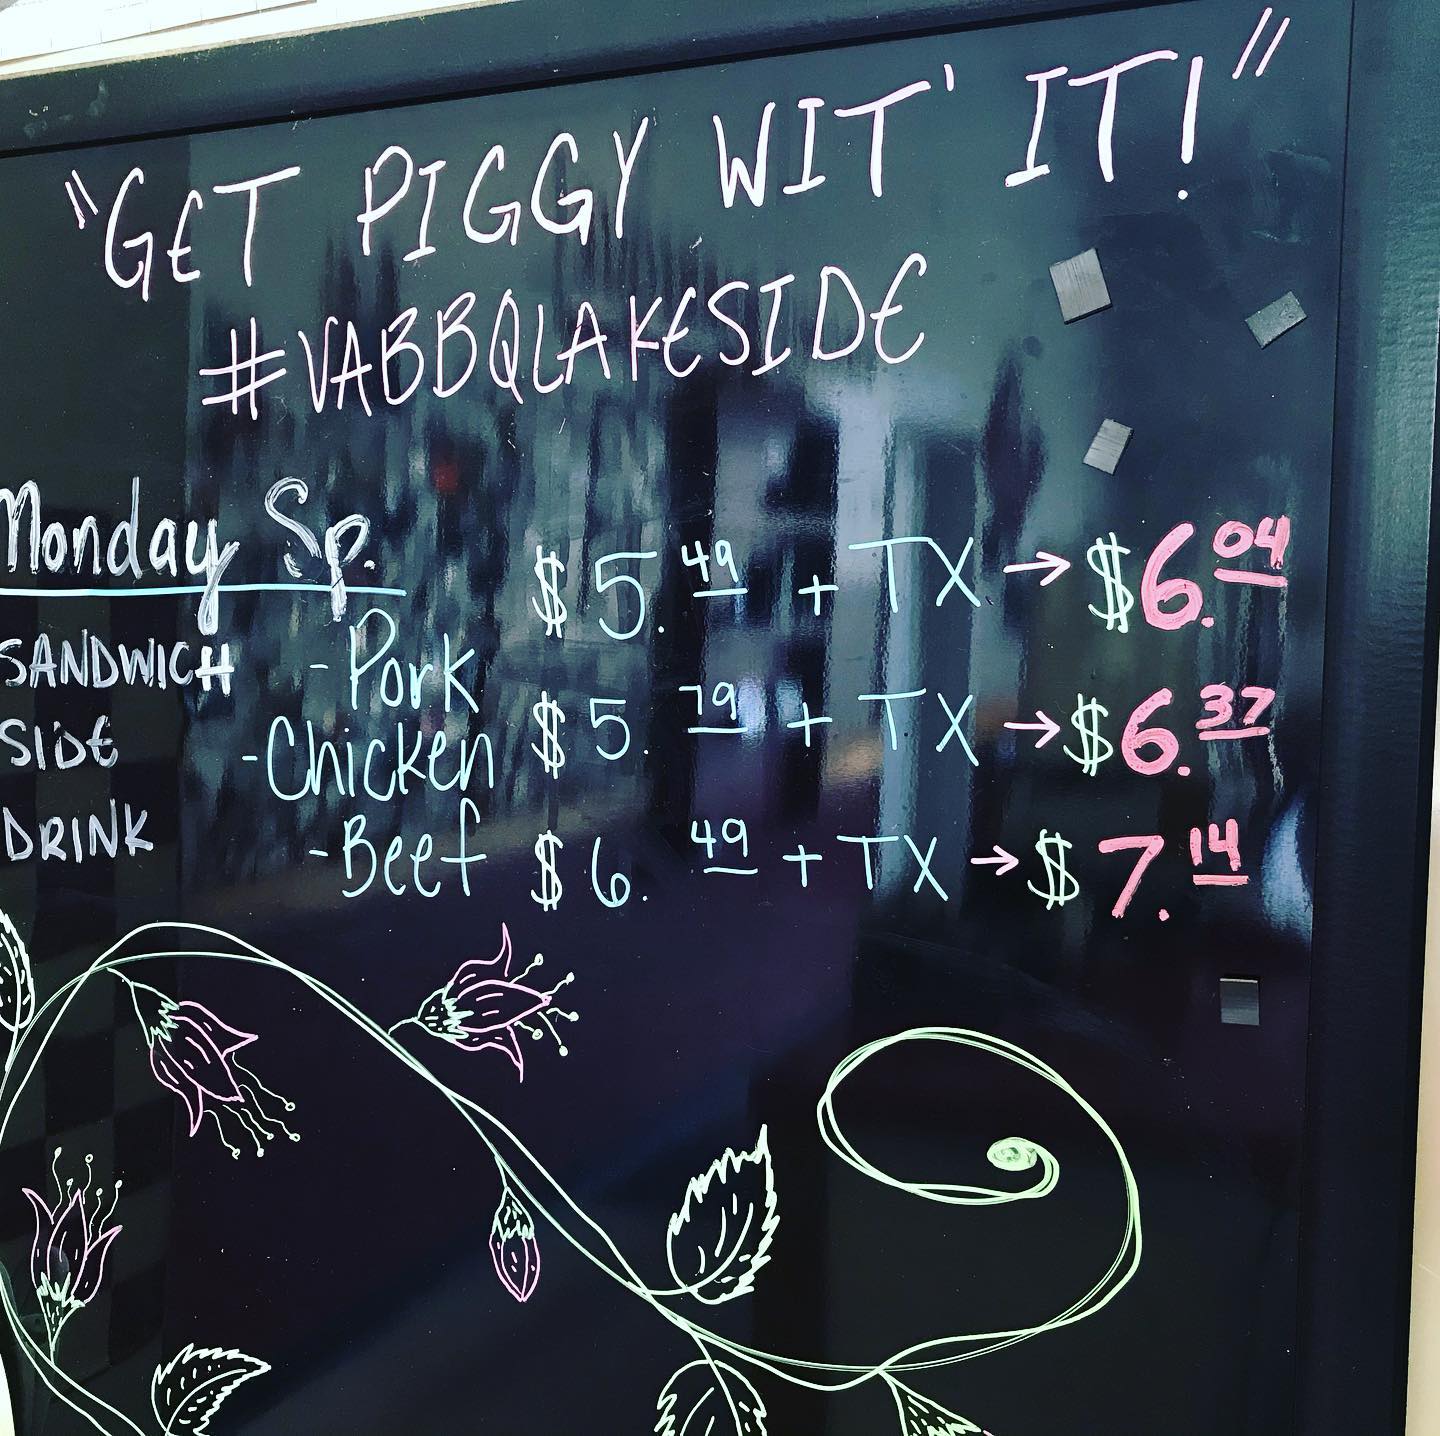 "GET PIGGY WIT' IT!"
#VABBQLAKESIDE
Monday Sp.
SANDWICH -Pork $5.49 + TX → $6.04
SIDE -Chicken $5.79 + TX → $6.37
DRINK -Beef $6.49 + TX → $7.14